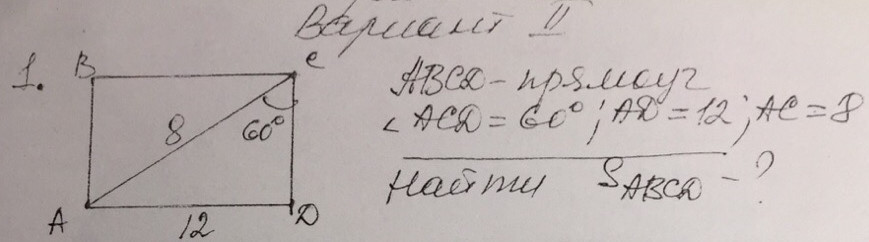 Вариант II
1. B C
ABCD - прямоуг
8 60° < ACD = 60°; AD = 12; AC = 8
Найти S ABCD - ?
A 12 D